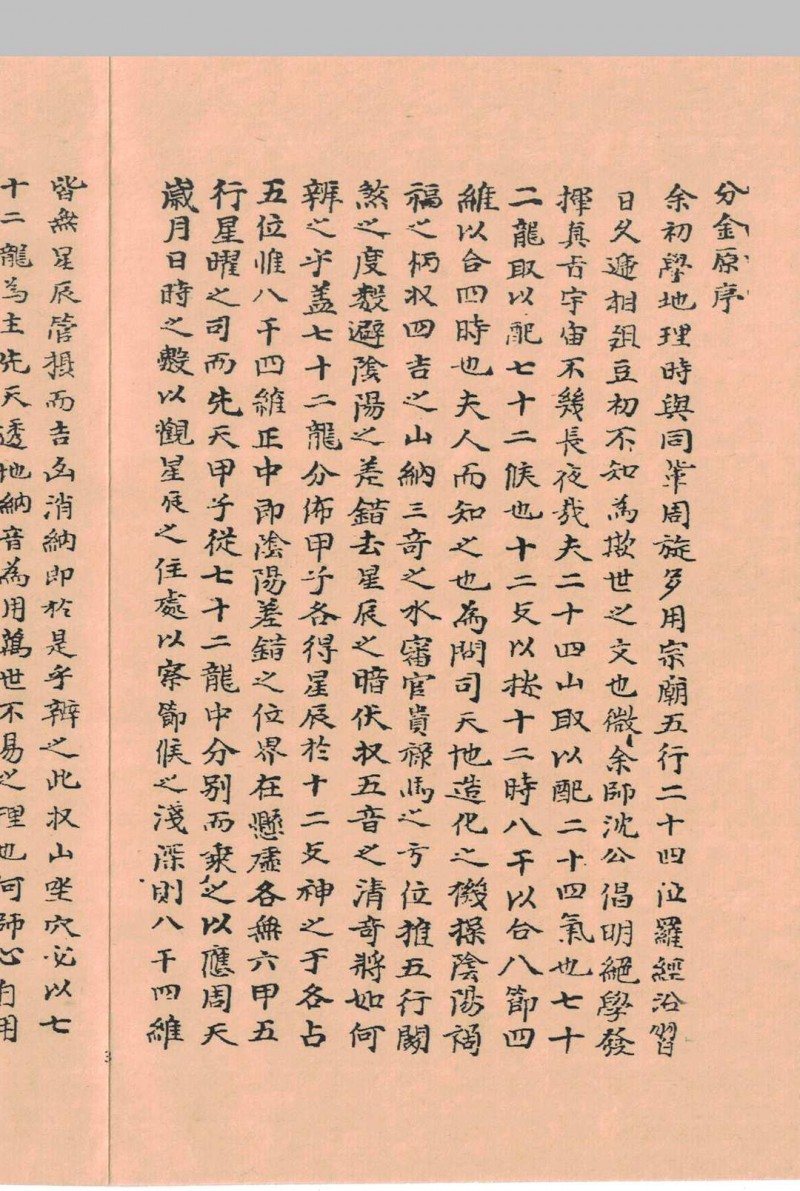 分金原序
余初學地理時與同輩周旋多用宗廟五行二十四位羅經沿習
日久遞相俎豆初不知為欺世之文也微余師沈公倡明絕學發
揮真旨宇宙不幾長夜哉夫二十四山取以配二十四氣也七十
二龍取以配七十二候也十二支以按十二時八干以合八節四
維以合四時也夫人而知之也為問司天地造化之機操陰陽禍
福之柄収四吉之山納三奇之水審官貴祿馬之方位推五行關
煞之度數避陰陽之差錯去星辰之暗伏収五音之清奇將如何
辨之乎盖七十二龍分佈甲子各得星辰於十二支神之于各占
五位惟八干四維正中即陰陽差錯之位界在懸虛各無六甲五
行星曜之司而先天甲子從七十二龍中分別而乘之以應周天
歲月日時之數以觀星辰之住處以察節候之淺深則八干四維
皆無星辰管攝而吉凶消納即於是乎辨之此収山坐穴必以七
十二龍為主先天透地納音為用萬世不易之理也何師心自用